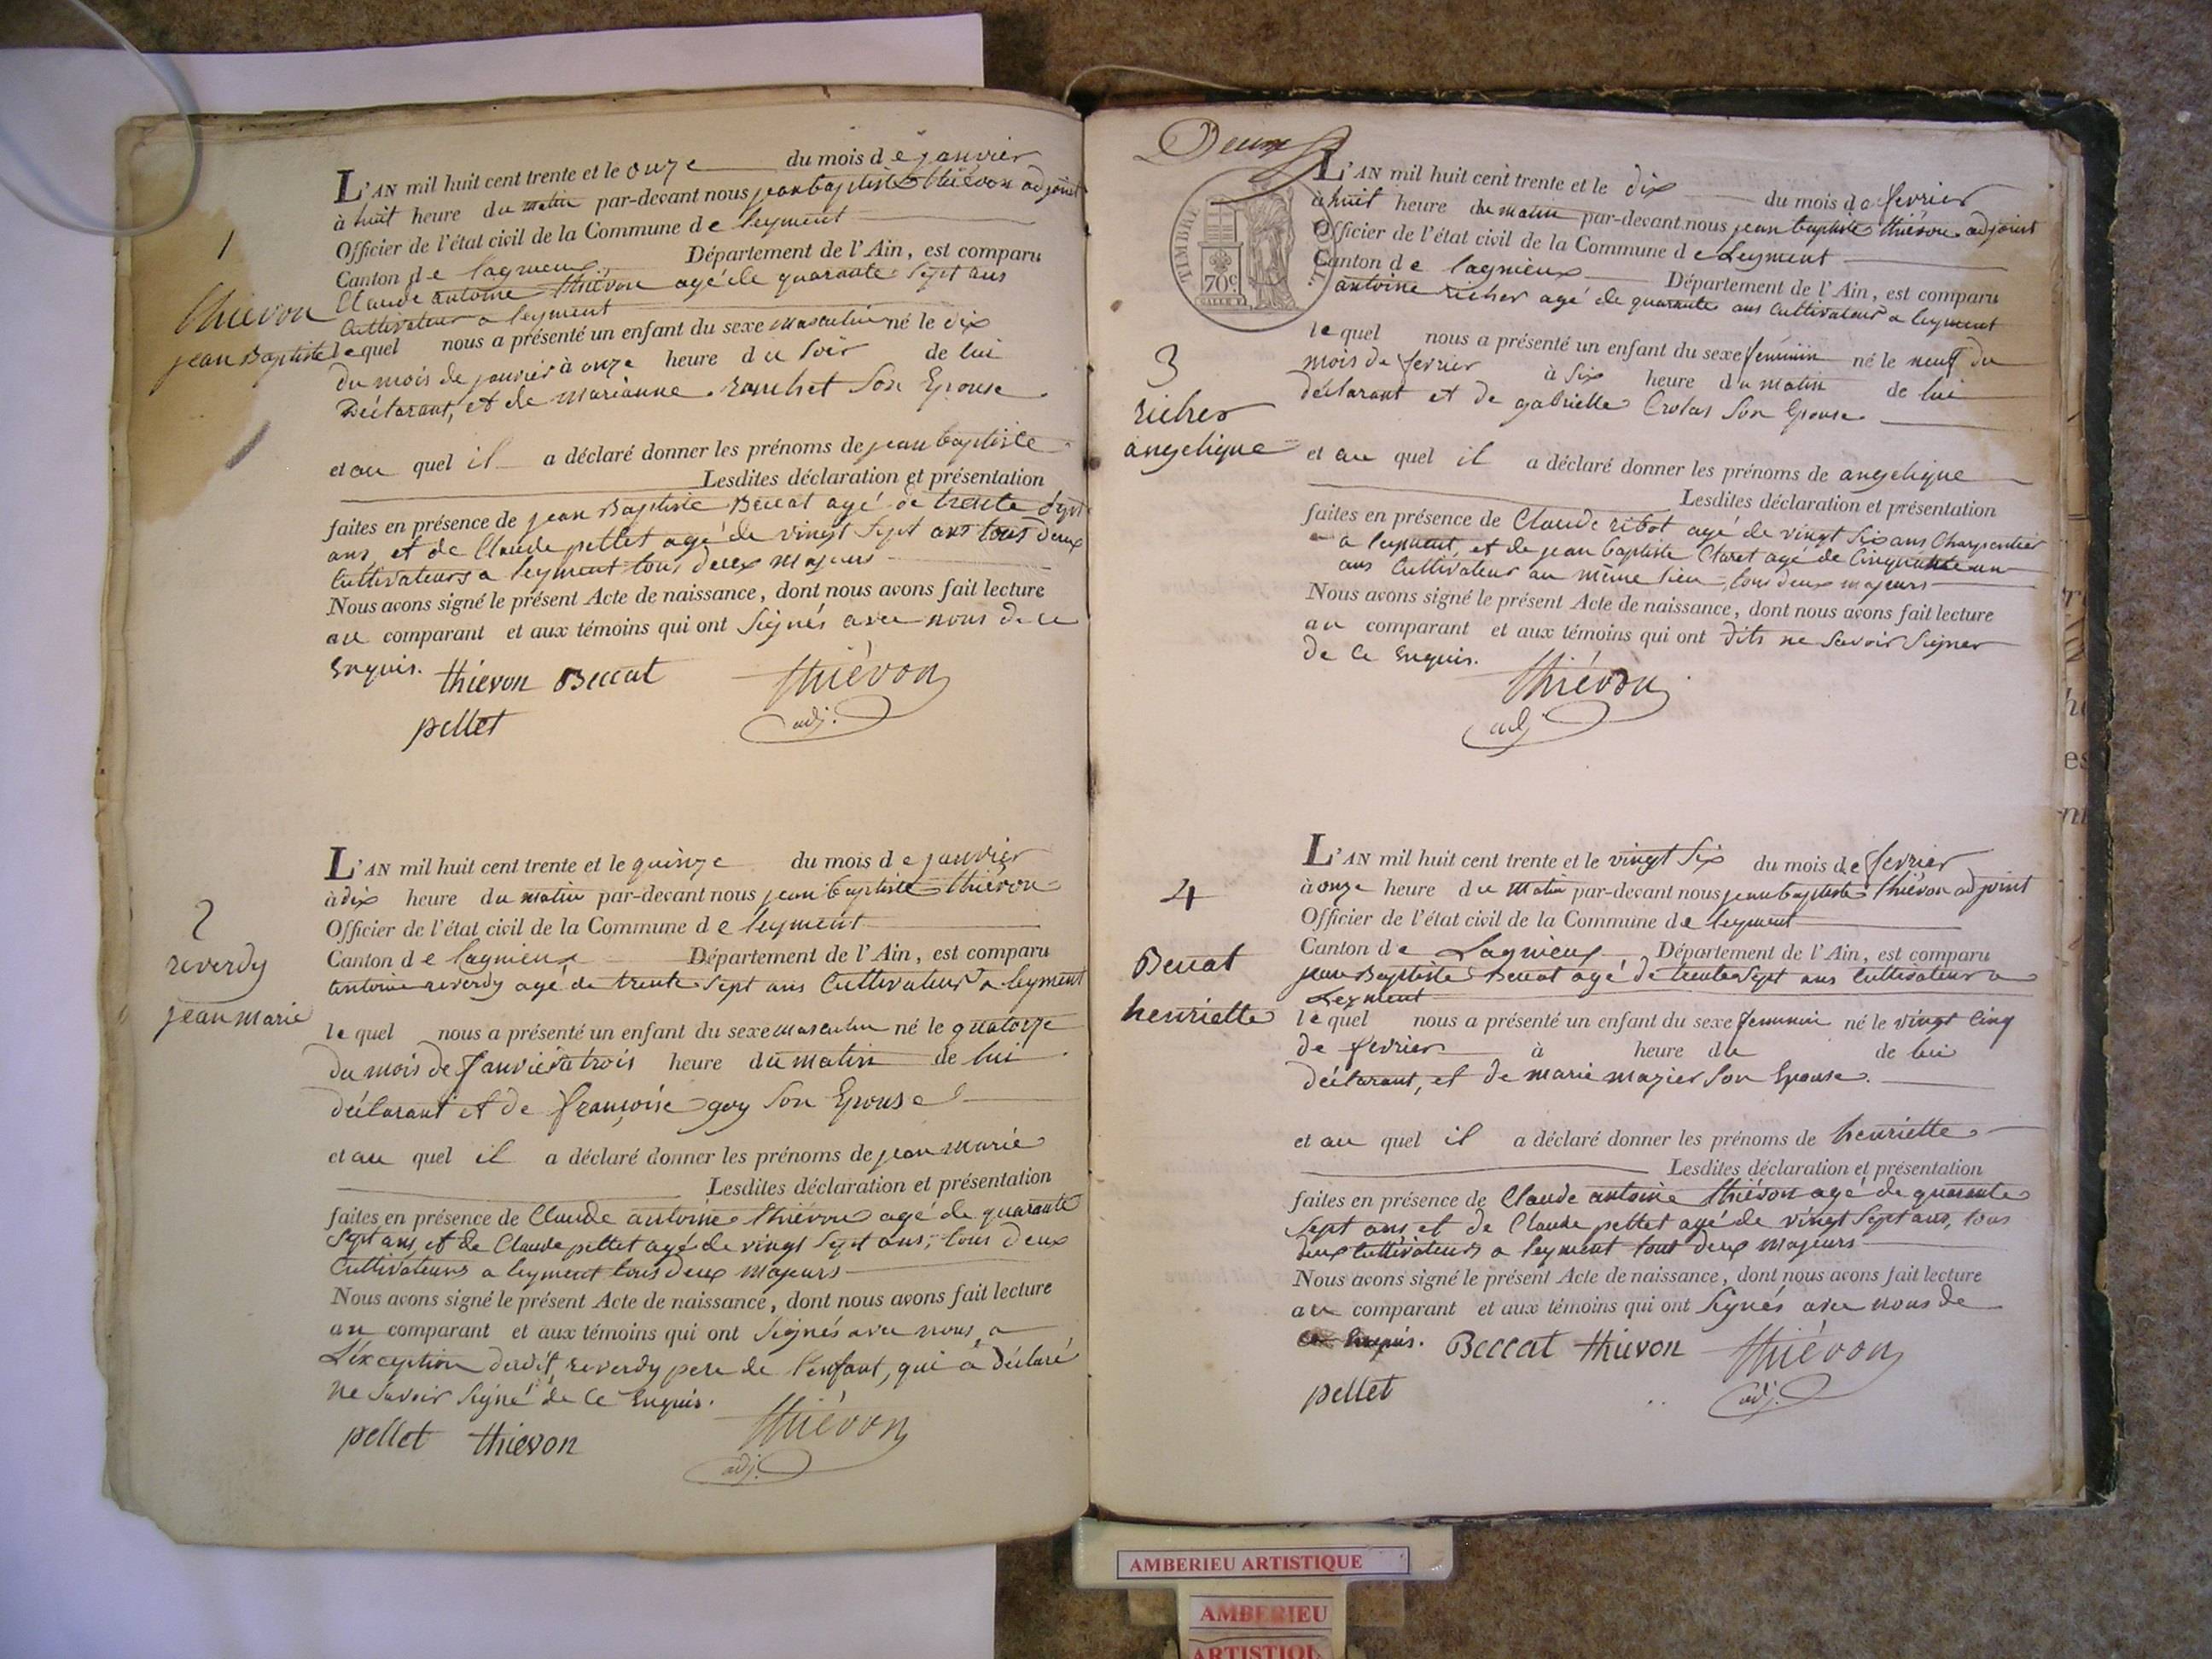 1
thievon
jean Baptiste
L'AN mil huit cent trente et le onze du mois de janvier
à huit heure du matin par-devant nous jean baptiste thiévon adjoint
Officier de l'état civil de la Commune de leyment
Canton de lagnieux Département de l'Ain, est comparu
Claude antoine thiévon agé de quarante sept ans
Cultivateur a leyment
lequel nous a présenté un enfant du sexe masculin né le dix
du mois de janvier à onze heure du soir de lui
Déclarant, et de marianne son Epouse
et au quel il a déclaré donner les prénoms de jean baptiste
Lesdites déclaration et présentation
faites en présence de jean Baptiste Beccat agé de trente sept
ans, et de Claude pellet agé de vingt sept ans tous deux
Cultivateurs a leyment tous deux majeurs
Nous avons signé le présent Acte de naissance, dont nous avons fait lecture
au comparant et aux témoins qui ont signés avec nous de ce
Enquis. thievon Beccat thiévon
pellet adj.
2
reverdy
jean marie
L'AN mil huit cent trente et le quinze du mois de janvier
à dix heure du matin par-devant nous jean baptiste thiévon
Officier de l'état civil de la Commune de leyment
Canton de lagnieux Département de l'Ain, est comparu
antoine reverdy agé de trente sept ans Cultivateur a leyment
lequel nous a présenté un enfant du sexe masculin né le quatorze
du mois de janvier à trois heure du matin de lui
déclarant et de françoise goy son Epouse
et au quel il a déclaré donner les prénoms de jean marie
Lesdites déclaration et présentation
faites en présence de Claude antoine thiévon agé de quarante
sept ans, et de Claude pellet agé de vingt sept ans, tous deux
Cultivateurs a leyment tous deux majeurs
Nous avons signé le présent Acte de naissance, dont nous avons fait lecture
au comparant et aux témoins qui ont signés avec nous, a
L'exception dudit reverdy pere de l'enfant, qui a déclaré
ne savoir signé de ce Enquis.
pellet thievon thiévon
adj.
Deux
TIMBRE
70c
3
richer
angelique
L'AN mil huit cent trente et le dix du mois de fevrier
à huit heure du matin par-devant nous jean baptiste thiévon adjoint
Officier de l'état civil de la Commune de Leyment
Canton de lagnieux Département de l'Ain, est comparu
antoine richer agé de quarante ans Cultivateur a leyment
lequel nous a présenté un enfant du sexe feminin né le neuf du
mois de fevrier à six heure du matin de lui
déclarant et de gabrielle Crolas son Epouse.
et au quel il a déclaré donner les prénoms de angelique
Lesdites déclaration et présentation
faites en présence de Claude ribot agé de vingt six ans Charpentier
a leyment, et de jean baptiste Claret agé de Cinquante un
ans Cultivateur au même lieu, tous deux majeurs
Nous avons signé le présent Acte de naissance, dont nous avons fait lecture
au comparant et aux témoins qui ont dits ne savoir signer
de ce Enquis.
thiévon
adj
4
Beccat
henriette
L'AN mil huit cent trente et le vingt six du mois de fevrier
à onze heure du matin par-devant nous jean baptiste thiévon adjoint
Officier de l'état civil de la Commune de leyment
Canton de Lagnieux Département de l'Ain, est comparu
jean Baptiste Beccat agé de trente sept ans Cultivateur a
Leyment
lequel nous a présenté un enfant du sexe feminin né le vingt Cinq
de fevrier à heure du de lui
déclarant, et de marie mazier son Epouse.
et au quel il a déclaré donner les prénoms de henriette
Lesdites déclaration et présentation
faites en présence de Claude antoine thiévon agé de quarante
sept ans et de Claude pellet agé de vingt sept ans, tous
deux Cultivateurs a leyment tout deux majeurs
Nous avons signé le présent Acte de naissance, dont nous avons fait lecture
au comparant et aux témoins qui ont signés avec nous de
ce Enquis. Beccat thievon thiévon
pellet adj.
AMBERIEU ARTISTIQUE
AMBERIEU
ARTISTIQU